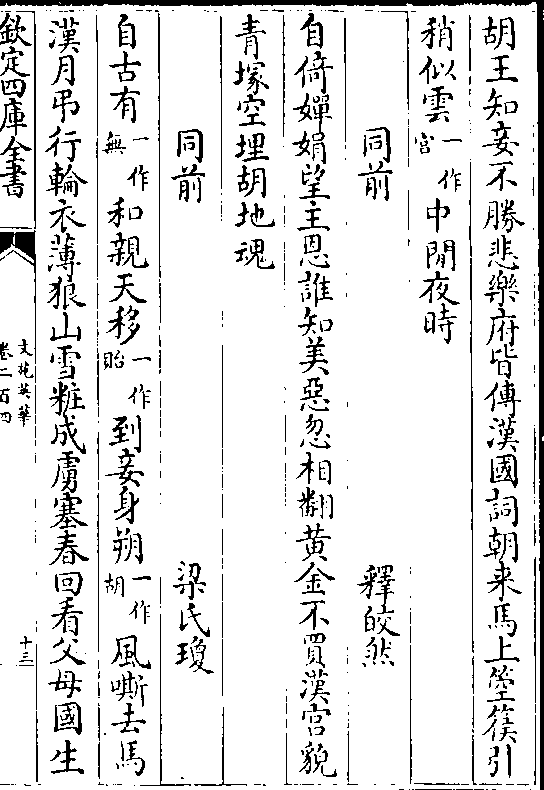 胡王知妾不勝悲樂府皆傳漢國詞朝来馬上箜篌引
稍似雲一作宫中閒夜時
同前
釋皎然
自倚嬋娟望主恩誰知美惡忽相翻黄金不買漢宫貌
青塚空埋胡地魂
同前
梁氏瓊
自古有一作無和親天移一作貽到妾身朔一作胡風嘶去馬
漢月弔行輪衣薄狼山雪粧成虜塞春回看父母國生
欽定四庫全書
文苑英華
卷二百四
十三